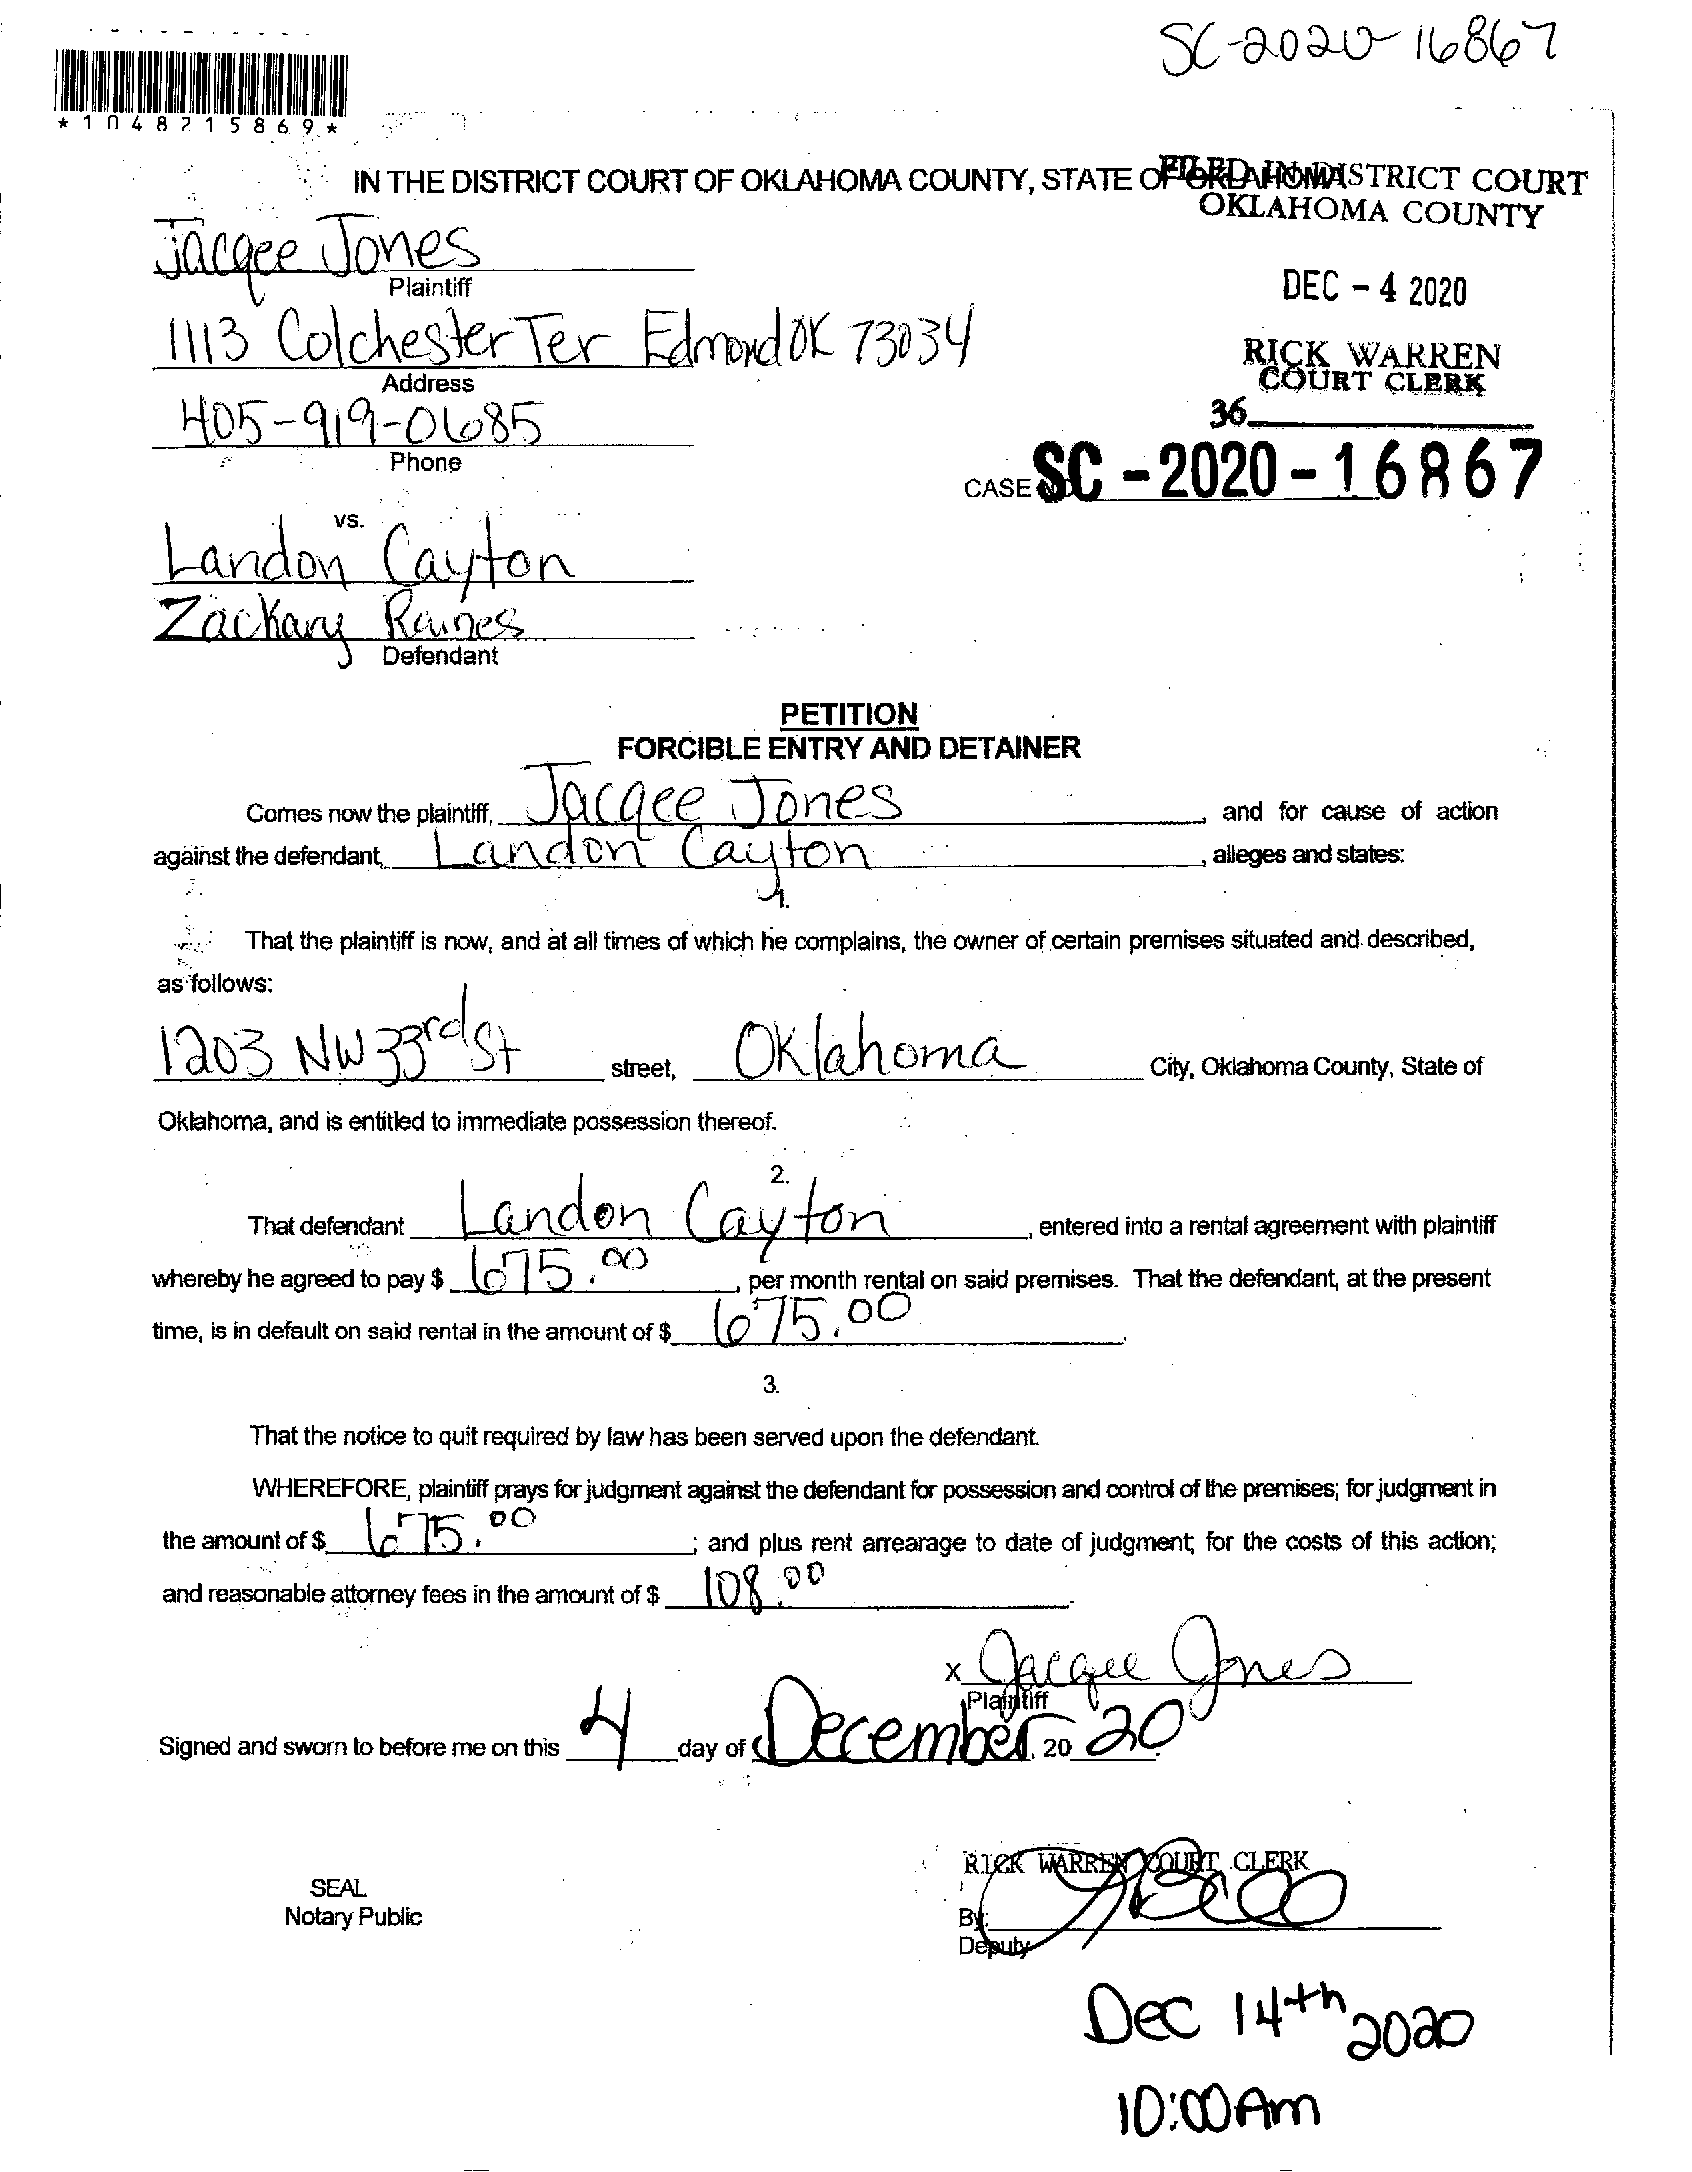 SC-2020-16867
*1048215869*
IN THE DISTRICT COURT OF OKLAHOMA COUNTY, STATE OF OKLAHOMA
FILED IN DISTRICT COURT
OKLAHOMA COUNTY
Jacqee Jones
Plaintiff
DEC - 4 2020
1113 Colchester Ter Edmond OK 73034
Address
RICK WARREN
COURT CLERK
405-919-0685
Phone
36
CASE NO. SC - 2020 - 16867
vs.
Landon Cayton
Zackary Raines
Defendant
PETITION
FORCIBLE ENTRY AND DETAINER
Comes now the plaintiff, Jacqee Jones, and for cause of action
against the defendant, Landon Cayton, alleges and states:
1.
That the plaintiff is now, and at all times of which he complains, the owner of certain premises situated and described,
as follows:
1203 NW 33rd St street, Oklahoma City, Oklahoma County, State of
Oklahoma, and is entitled to immediate possession thereof.
2.
That defendant Landon Cayton, entered into a rental agreement with plaintiff
whereby he agreed to pay $ 675.00, per month rental on said premises. That the defendant, at the present
time, is in default on said rental in the amount of $ 675.00.
3.
That the notice to quit required by law has been served upon the defendant.
WHEREFORE, plaintiff prays for judgment against the defendant for possession and control of the premises; for judgment in
the amount of $ 675.00; and plus rent arrearage to date of judgment; for the costs of this action;
and reasonable attorney fees in the amount of $ 108.00.
x Jacqee Jones
Plaintiff
Signed and sworn to before me on this 4 day of December, 20 20.
RICK WARREN COURT CLERK
SEAL
Notary Public
By:
Deputy
Dec 14th 2020
10:00 Am